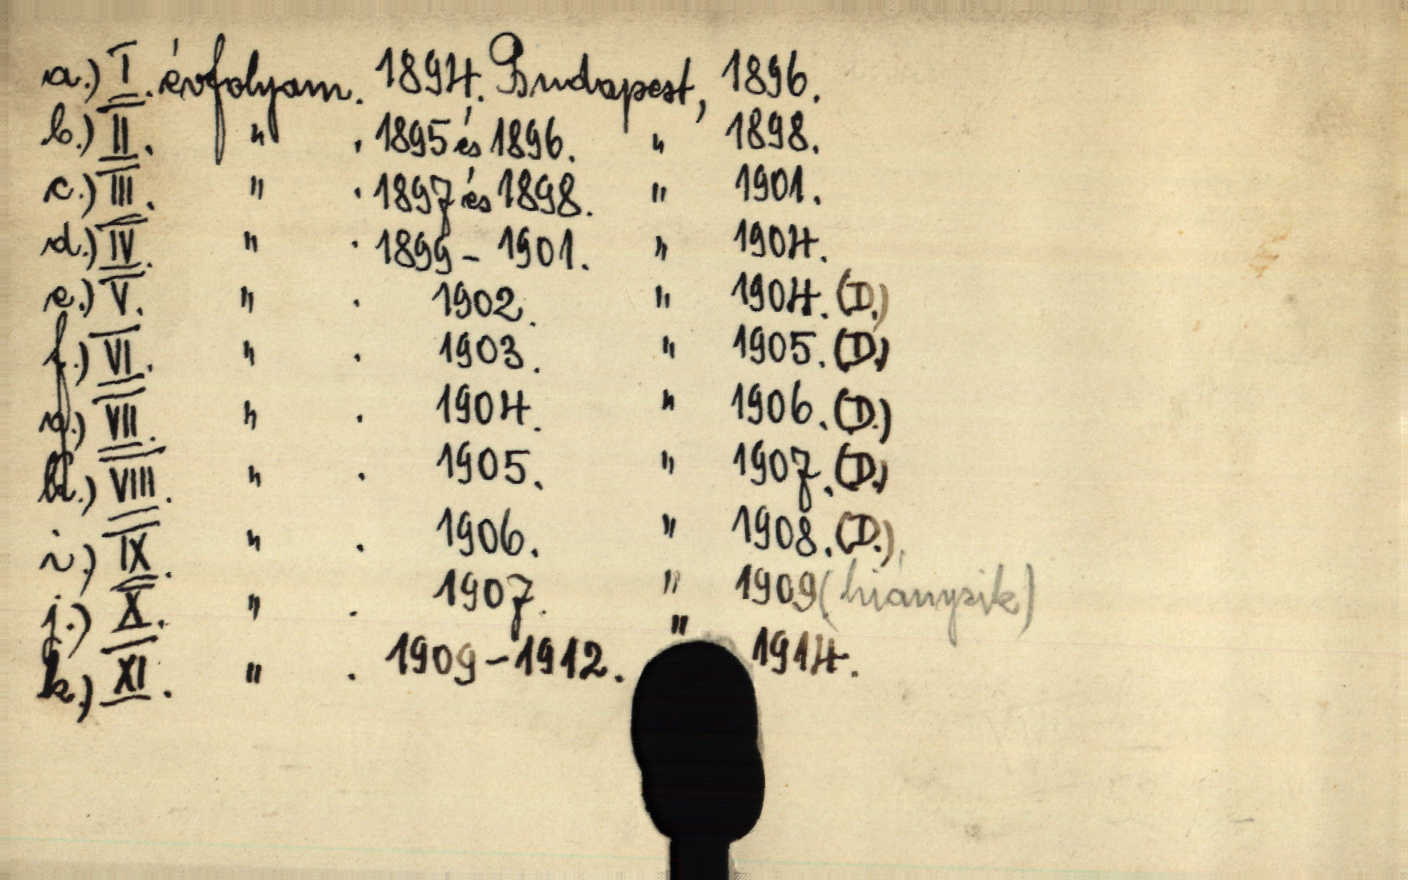 a.) I. évfolyam. 1894. Budapest, 1896.
b.) II. " . 1895 és 1896. " 1898.
c.) III. " . 1897 és 1898. " 1901.
d.) IV. " . 1899 - 1901. " 1904.
e.) V. " . 1902. " 1904. (D.)
f.) VI. " . 1903. " 1905. (D.)
g.) VII. " . 1904. " 1906. (D.)
h.) VIII. " . 1905. " 1907. (D.)
i.) IX. " . 1906. " 1908. (D.)
j.) X. " . 1907. " 1909 (hiányzik)
k.) XI. " . 1909-1912. " 1914.